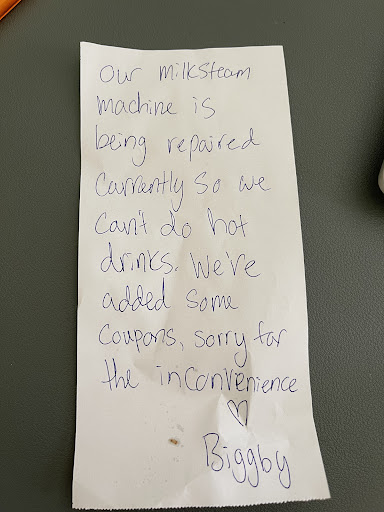 Our milksteam
machine is
being repaired
currently so we
can't do hot
drinks. We've
added some
coupons, sorry for
the inconvenience
♡
Biggby